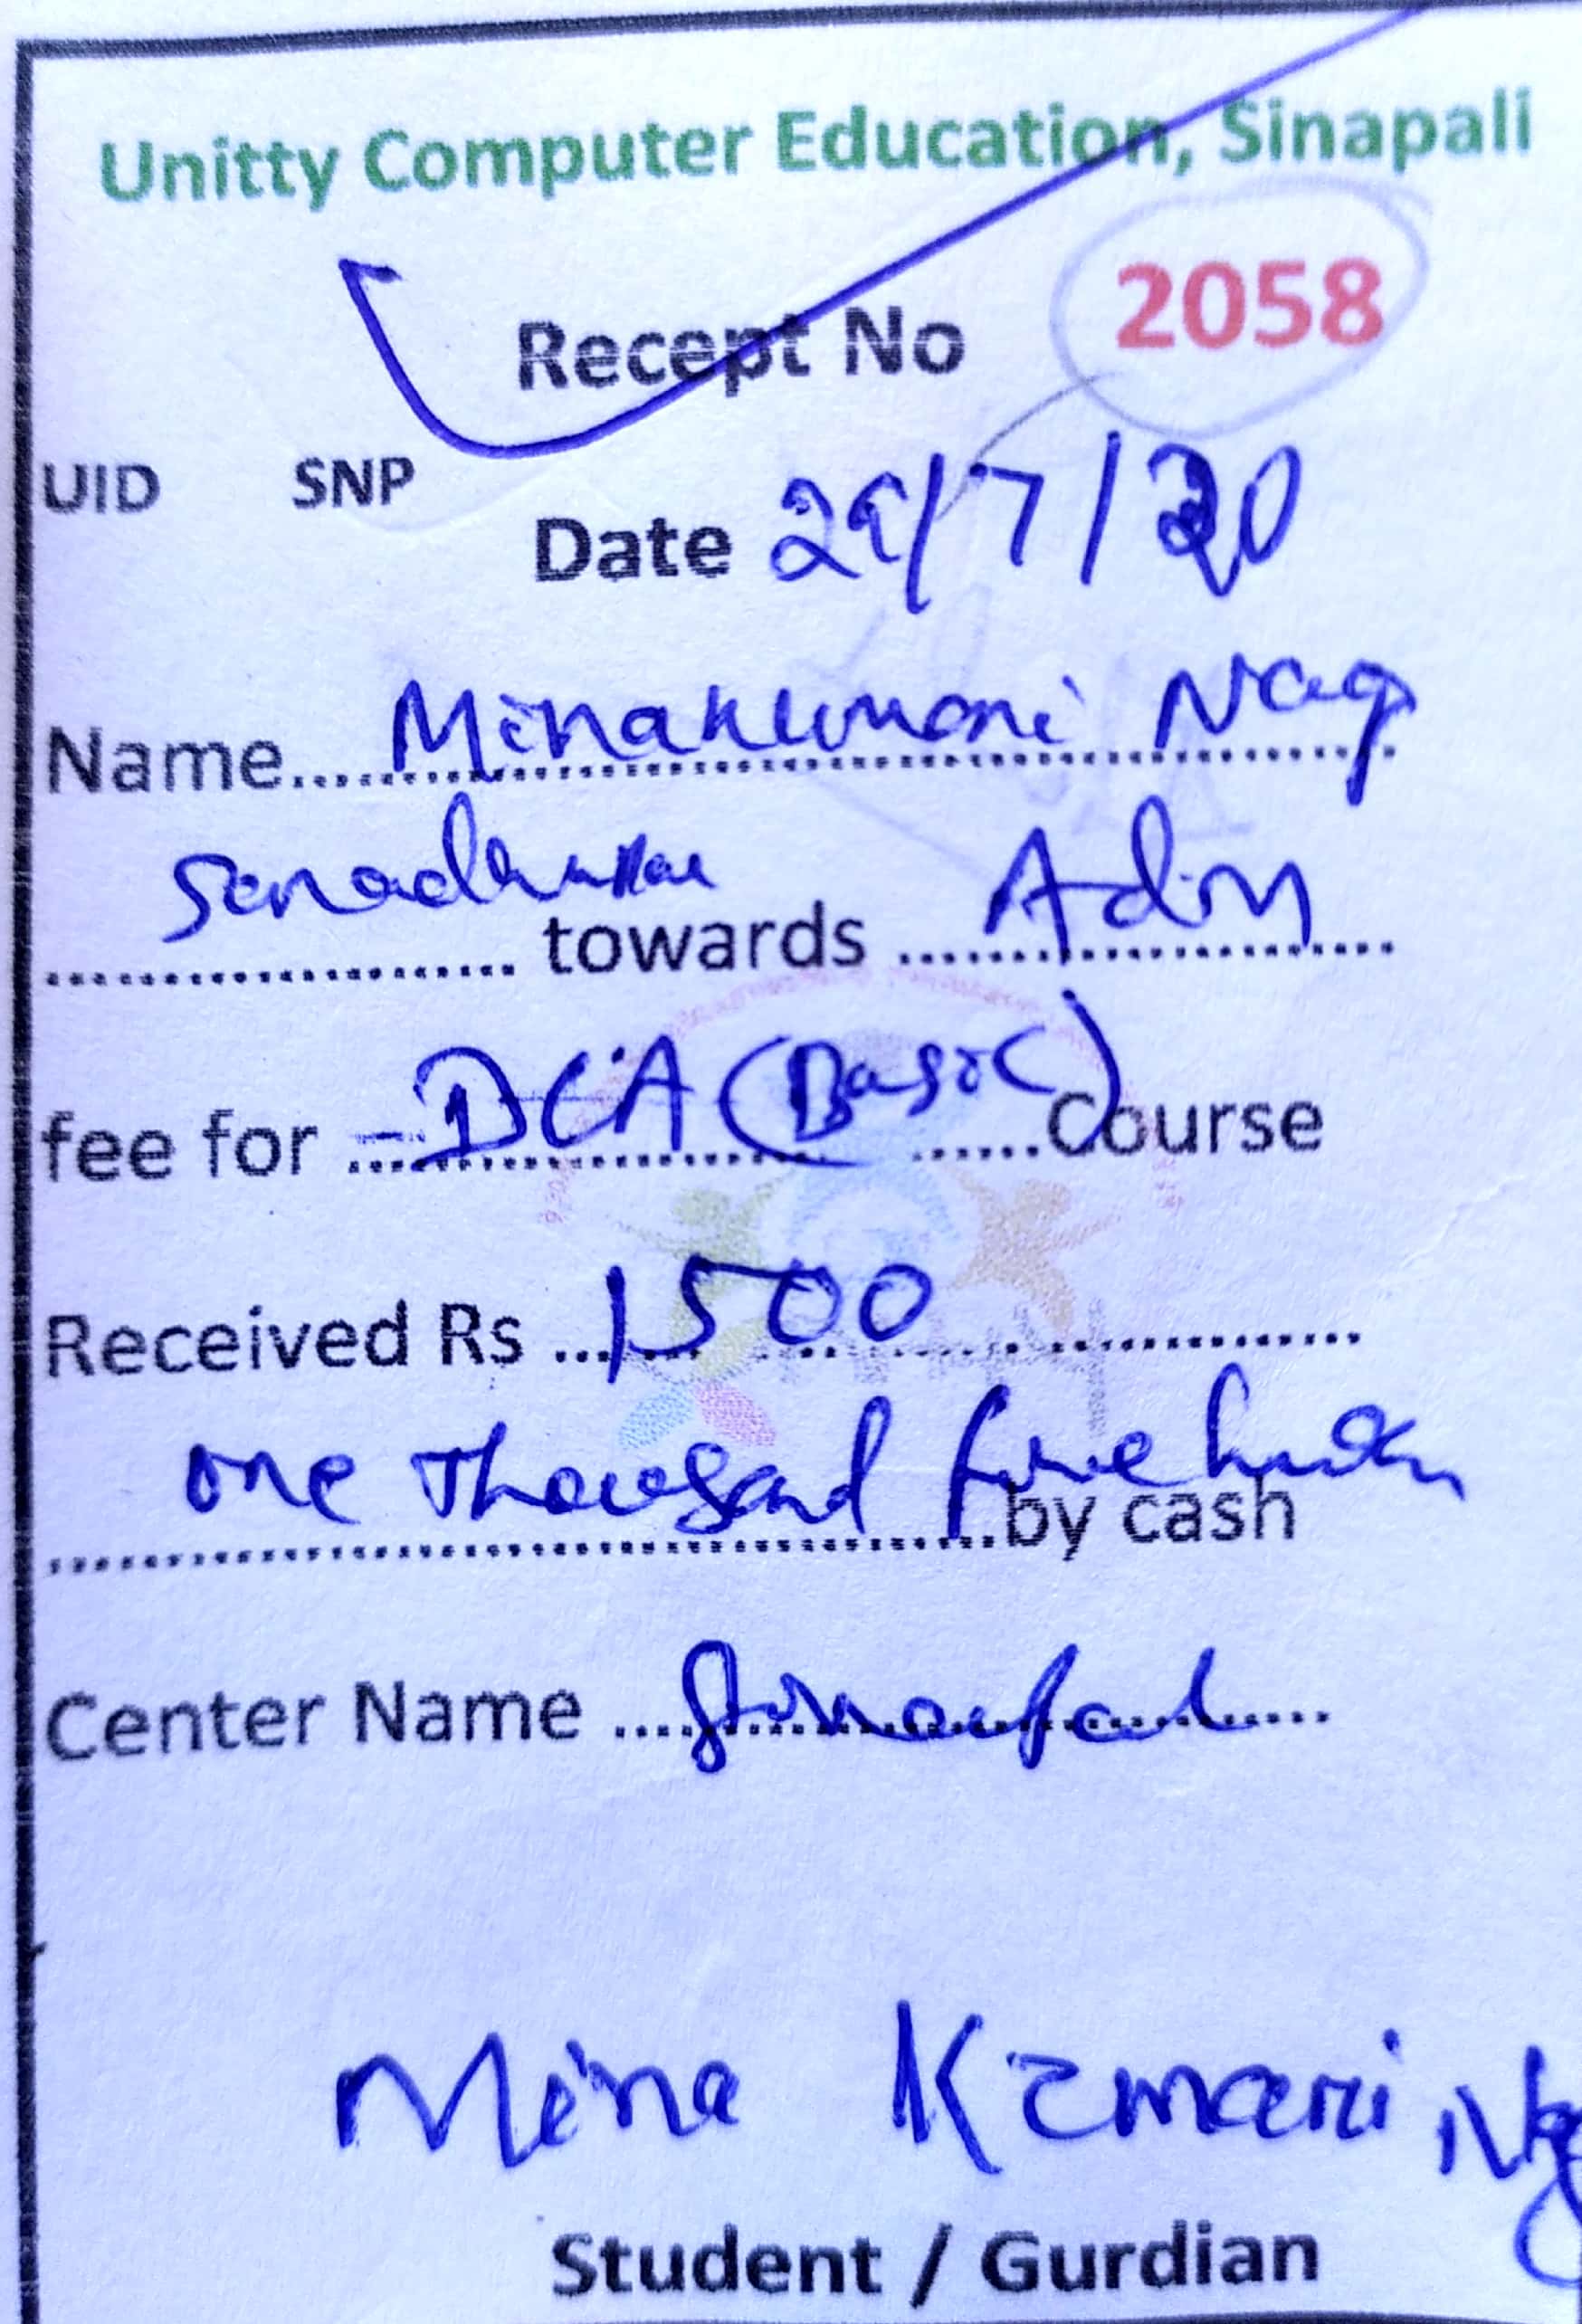 Unitty Computer Education, Sinapali
Recept No 2058
UID SNP
Date 29/7/20
Name Minakumari Nag
towards Adm
fee for DCA (Basic) Course
Received Rs 1500
one Thousand five by cash
Center Name
Mina Kumari Nag
Student / Gurdian